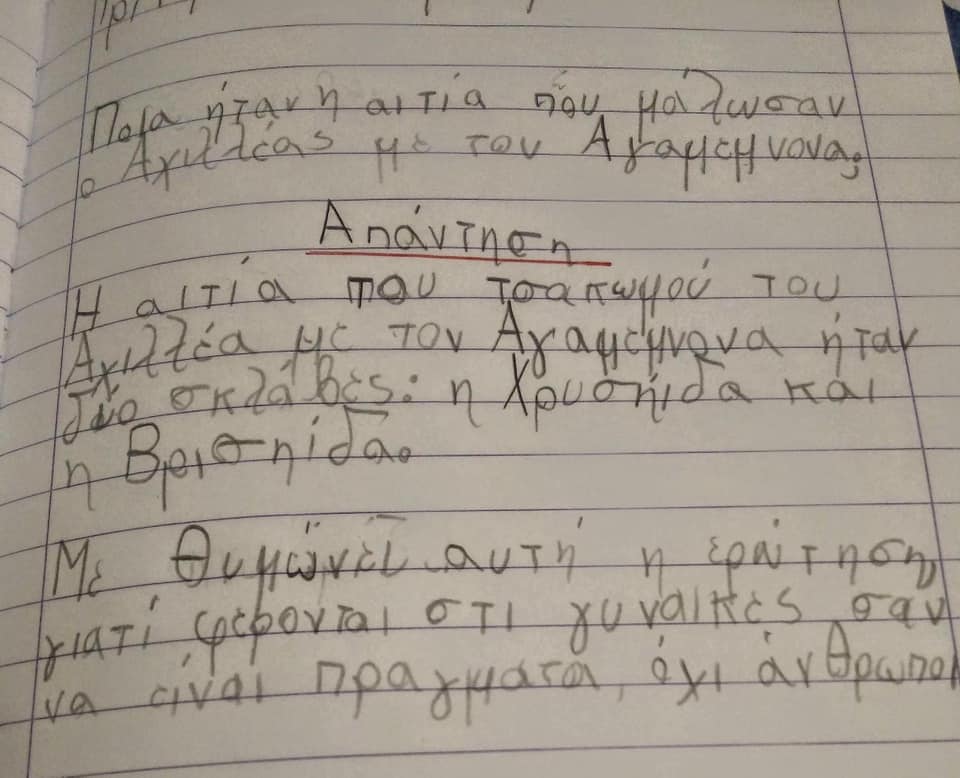 Ποια ήταν η αιτία που μάλωσαν
ο Αχιλλέας με τον Αγαμεμνονα;
Απάντηση
Η αιτία που τσακωμού του
Αχιλλέα με τον Αγαμέμνονα ήταν
δυο σκλάβες: η Χρυσηίδα και
η Βρισηίδα.
Με θυμώνει αυτή η ερώτηση,
γιατί φέρονται στι γυναίκες σαν
να είναι πραγματα, όχι άνθρωποι